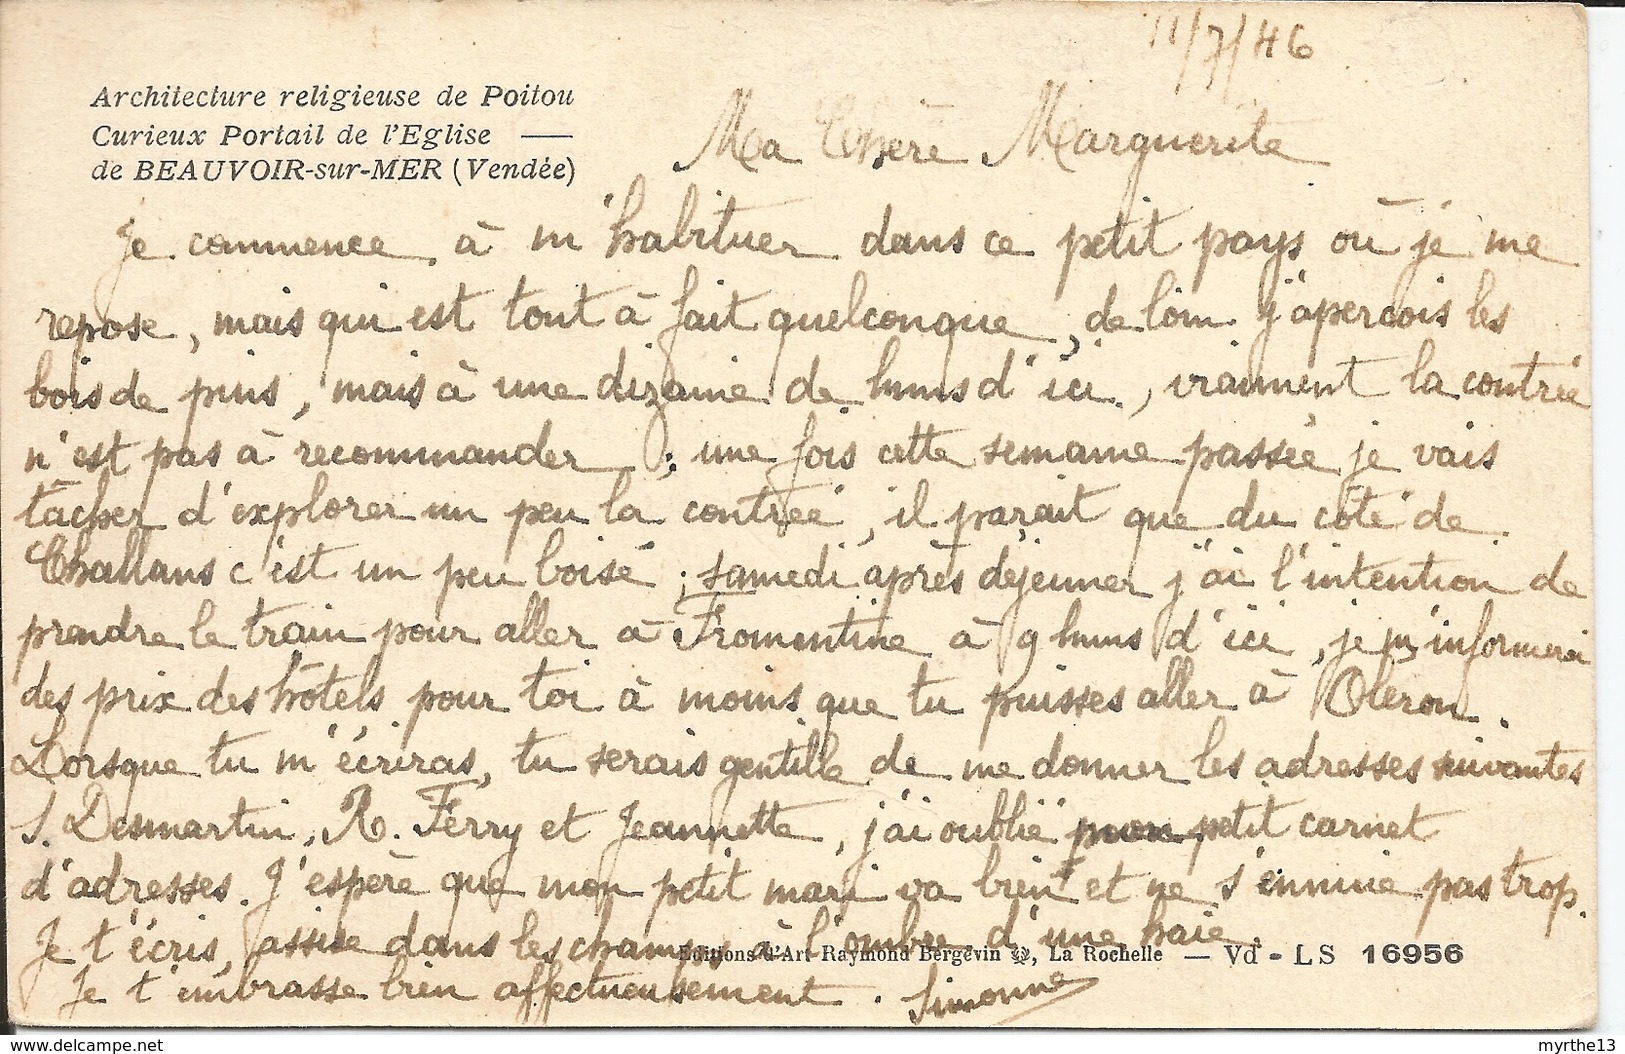 11/7/46
Architecture religieuse de Poitou
Curieux Portail de l'Eglise —
de BEAUVOIR-sur-MER (Vendée)
Ma Chère Marguerite
Je commence à m'habituer dans ce petit pays où je me
repose, mais qui est tout à fait quelconque, de loin j'aperçois les
bois de pins, mais à une dizaine de kms d'ici, vraiment la contrée
n'est pas à recommander; une fois cette semaine passée je vais
tâcher d'explorer un peu la contrée, il parait que du côté de
Challans c'est un peu boisé; samedi après déjeuner j'ai l'intention de
prendre le train pour aller à Fromentine à 9 kms d'ici, je m'informerai
des prix des hôtels pour toi à moins que tu puisses aller à Oleron.
Lorsque tu m'écriras, tu serais gentille de me donner les adresses suivantes
S. Desmartin, R. Ferry et Jeannette, j'ai oublié mon petit carnet
d'adresses. J'espère que mon petit mari va bien et ne s'ennuie pas trop.
Je t'écris, assise dans les champs à l'ombre d'une haie.
Editions d'Art Raymond Bergevin, La Rochelle — Vd - LS 16956
Je t'embrasse bien affectueusement. Simonne
www.delcampe.net
myrthe13